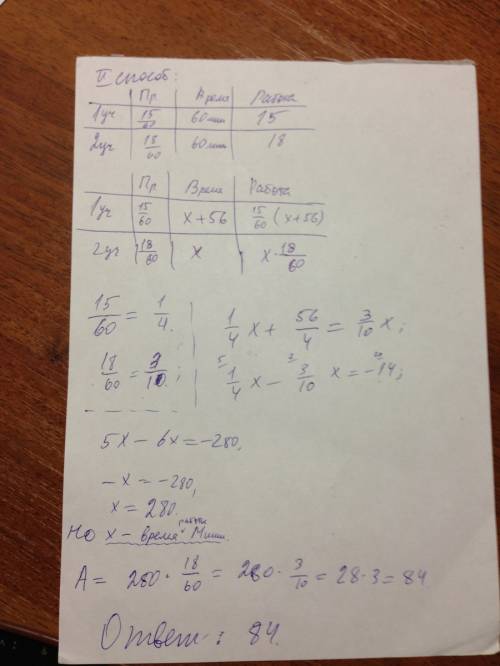 II способ:
Пр. Время Работа
1уч 15/60 60мин 15
2уч 18/60 60мин 18
Пр Время Работа
1уч 15/60 x+56 15/60 (x+56)
2уч 18/60 x x·18/60
15/60 = 1/4. 1/4 x + 56/4 = 3/10 x;
18/60 = 3/10; 5 1/4 x − 3/10 x = −14;
5x − 6x = −280,
−x = −280,
x = 280.
Но x – время работы Миши.
A = 280 · 18/60 = 280 · 3/10 = 28·3 = 84
Ответ: 84.